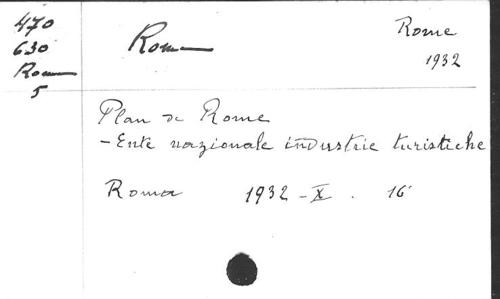 470
630
Rome
5
Rome
Rome
1932
Plan de Rome
- Ente nazionale industrie turistiche
Roma 1932 - X . 16°